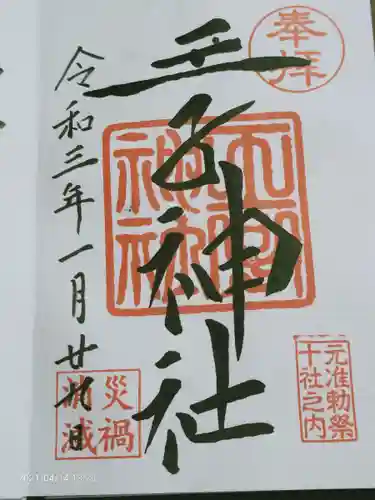 奉拝
王子神社
令和三年一月廿九日
元准勅祭
十社之内
災禍
消滅